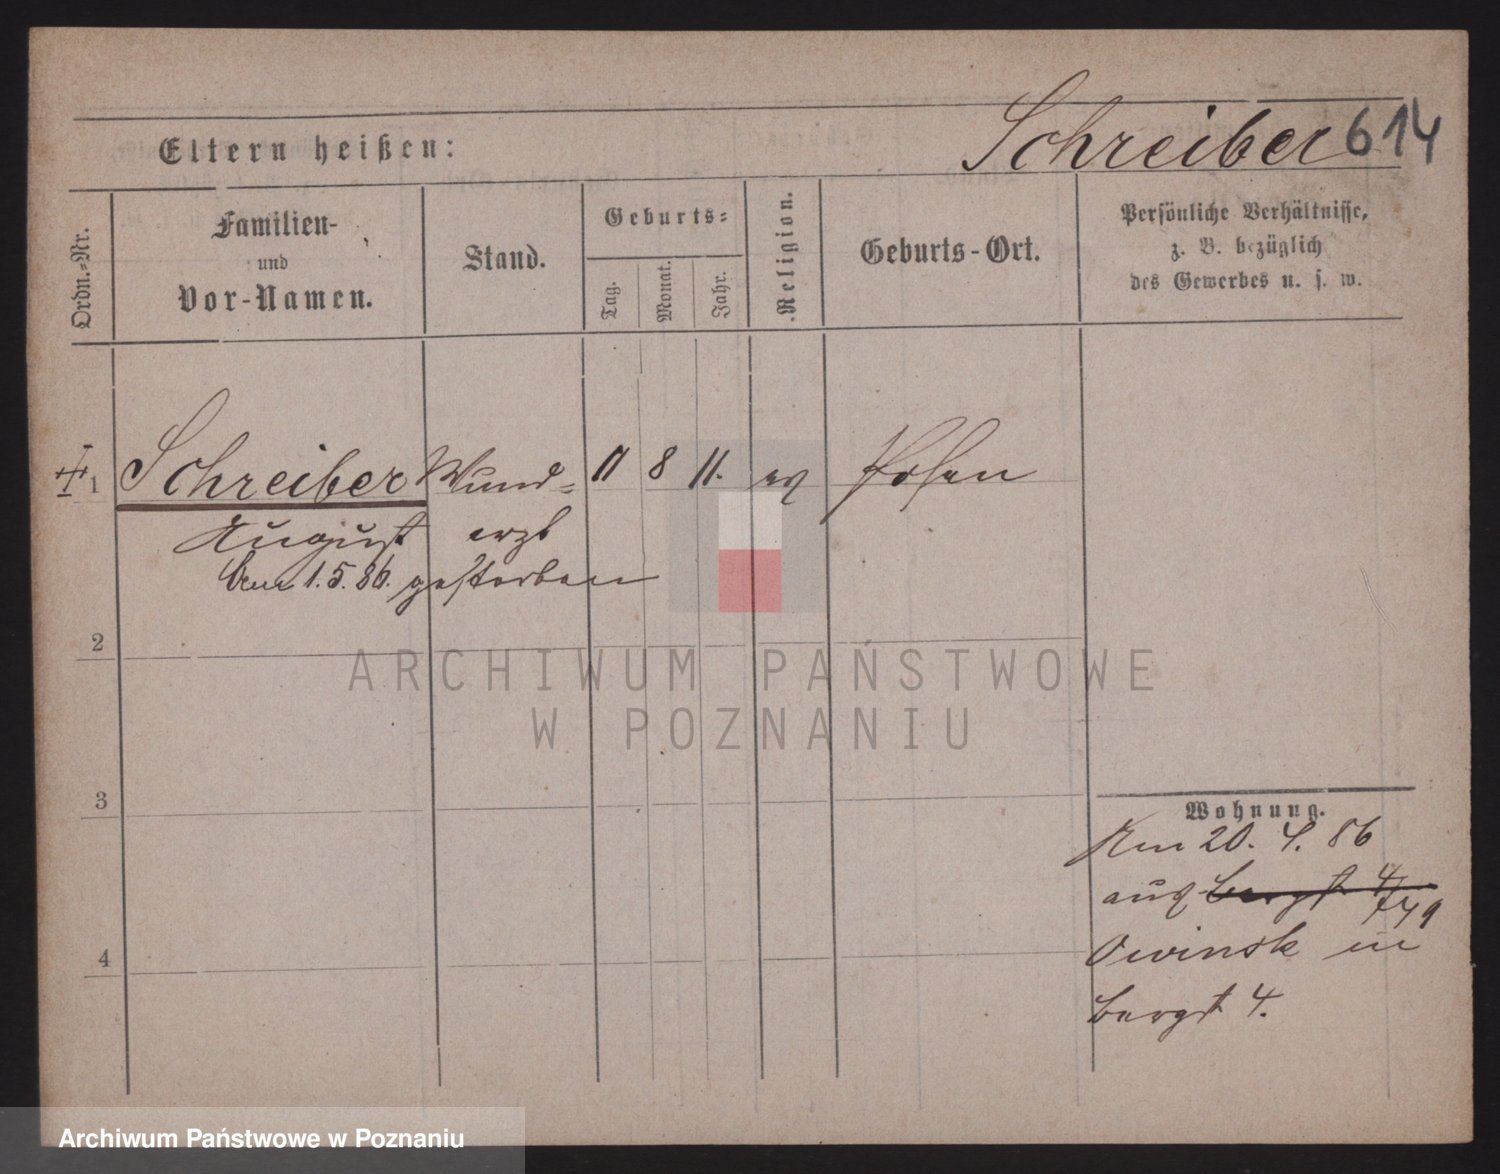 Schreiber 614
Eltern heißen:
Ordn.-Nr.
Familien-
und
Vor-Namen.
Stand.
Geburts-
Tag.
Monat.
Jahr.
Religion.
Geburts-Ort.
Persönliche Verhältnisse,
z. B. bezüglich
des Gewerbes u. s. w.
1 Schreiber Wund- 11 8 11. ev Posen
August arzt
Am 1.5.86. gestorben
2
3
4
Wohnung.
Am 20. 4. 86
aus Bergst 4
Owinsk in
Bergst 4.
ARCHIWUM PAŃSTWOWE
W POZNANIU
Archiwum Państwowe w Poznaniu